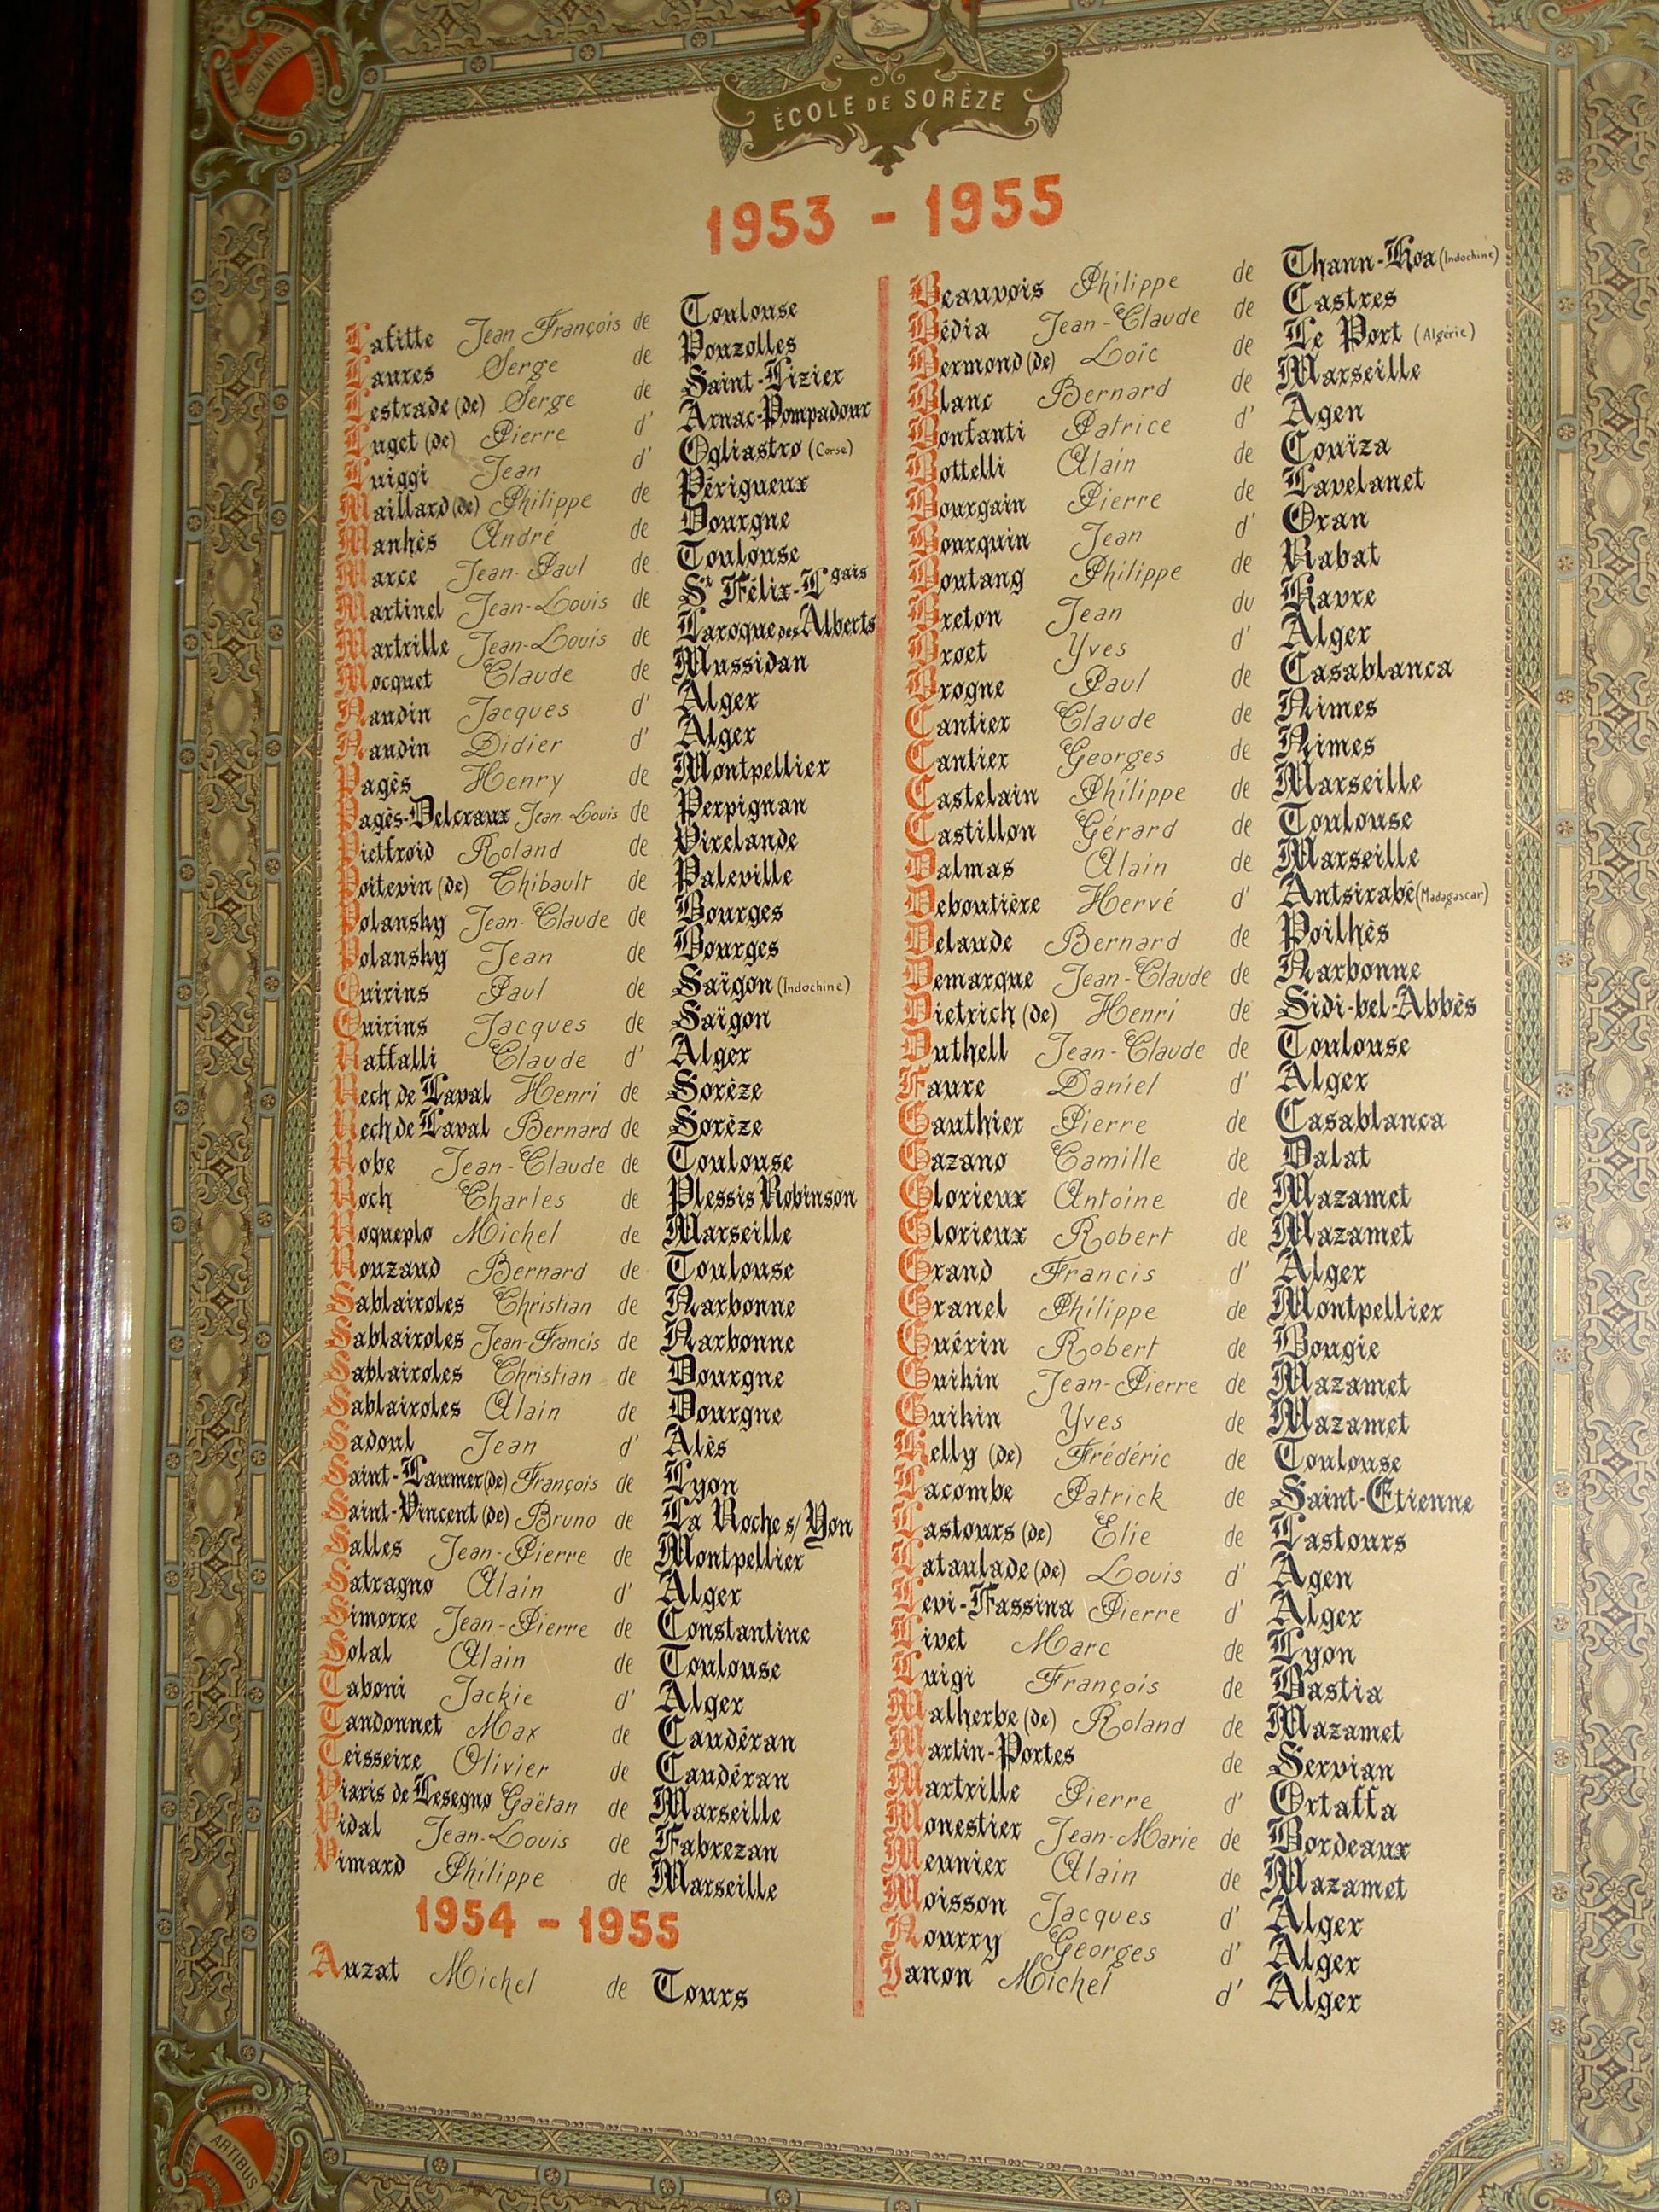 SCIENTIIS
ÉCOLE DE SORÈZE
1953 - 1955
Lafitte Jean François de Toulouse
Laures Serge de Pouzolles
Lestrade (de) Serge de Saint-Lizier
Luget (de) Pierre d' Arnac-Pompadour
Luiggi Jean d' Ogliastro (Corse)
Maillard (de) Philippe de Périgueux
Manhès André de Dourgne
Marce Jean-Paul de Toulouse
Martinel Jean-Louis de St Félix-Lgais
Martrille Jean-Louis de Laroque des Alberts
Mocquet Claude de Mussidan
Naudin Jacques d' Alger
Naudin Didier d' Alger
Pagès Henry de Montpellier
Pagès-Delcraux Jean-Louis de Perpignan
Pietfroid Roland de Virelande
Poitevin (de) Thibault de Paleville
Polansky Jean-Claude de Bourges
Polansky Jean de Bourges
Quirins Paul de Saïgon (Indochine)
Quirins Jacques de Saïgon
Raffalli Claude d' Alger
Rech de Laval Henri de Sorèze
Rech de Laval Bernard de Sorèze
Robe Jean-Claude de Toulouse
Roch Charles de Plessis Robinson
Roqueplo Michel de Marseille
Rouzaud Bernard de Toulouse
Sablairoles Christian de Narbonne
Sablairoles Jean-Francis de Narbonne
Sablairoles Christian de Dourgne
Sablairoles Alain de Dourgne
Sadoul Jean d' Alès
Saint-Laumer (de) François de Lyon
Saint-Vincent (de) Bruno de La Roche s/ Yon
Salles Jean-Pierre de Montpellier
Satragno Alain d' Alger
Simorre Jean-Pierre de Constantine
Solal Alain de Toulouse
Taboni Jackie d' Alger
Tandonnet Max de Caudéran
Teisseire Olivier de Caudéran
Viaris de Lesegno Gaëtan de Marseille
Vidal Jean-Louis de Fabrezan
Vimard Philippe de Marseille
1954 - 1955
Auzat Michel de Tours
Beauvois Philippe de Thann-Hoa (Indochine)
Bédia Jean-Claude de Castres
Bermond (de) Loïc de Le Port (Algérie)
Blanc Bernard de Marseille
Bonfanti Patrice d' Agen
Bottelli Alain de Couïza
Bourgain Pierre de Lavelanet
Bourquin Jean d' Oran
Boutang Philippe de Rabat
Breton Jean du Havre
Broet Yves d' Alger
Brogne Paul de Casablanca
Cantier Claude de Nimes
Cantier Georges de Nimes
Castelain Philippe de Marseille
Castillon Gérard de Toulouse
Dalmas Alain de Marseille
Deboutière Hervé d' Antsirabé (Madagascar)
Delaude Bernard de Poilhès
Demarque Jean-Claude de Narbonne
Dietrich (de) Henri de Sidi-bel-Abbès
Duthell Jean-Claude de Toulouse
Faure Daniel d' Alger
Gauthier Pierre de Casablanca
Gazano Camille de Dalat
Glorieux Antoine de Mazamet
Glorieux Robert de Mazamet
Grand Francis d' Alger
Granel Philippe de Montpellier
Guérin Robert de Bougie
Guihin Jean-Pierre de Mazamet
Guihin Yves de Mazamet
Kelly (de) Frédéric de Toulouse
Lacombe Patrick de Saint-Etienne
Lastours (de) Elie de Lastours
Lataulade (de) Louis d' Agen
Levi-Fassina Pierre d' Alger
Livet Marc de Lyon
Luigi François de Bastia
Malherbe (de) Roland de Mazamet
Martin-Portes de Servian
Martrille Pierre d' Ortaffa
Monestier Jean-Marie de Bordeaux
Meunier Alain de Mazamet
Moisson Jacques d' Alger
Nourry Georges d' Alger
Janon Michel d' Alger
ARTIBUS